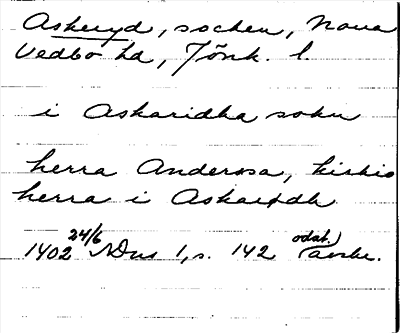 Askeryd, socken, Norra
Vedbo hd, Jönk. l.
i Askaridha sokn
herra Anderssa, kirkio
herra i Askarydh
1402 24/6 SDns 1, s. 142 odat. avskr.